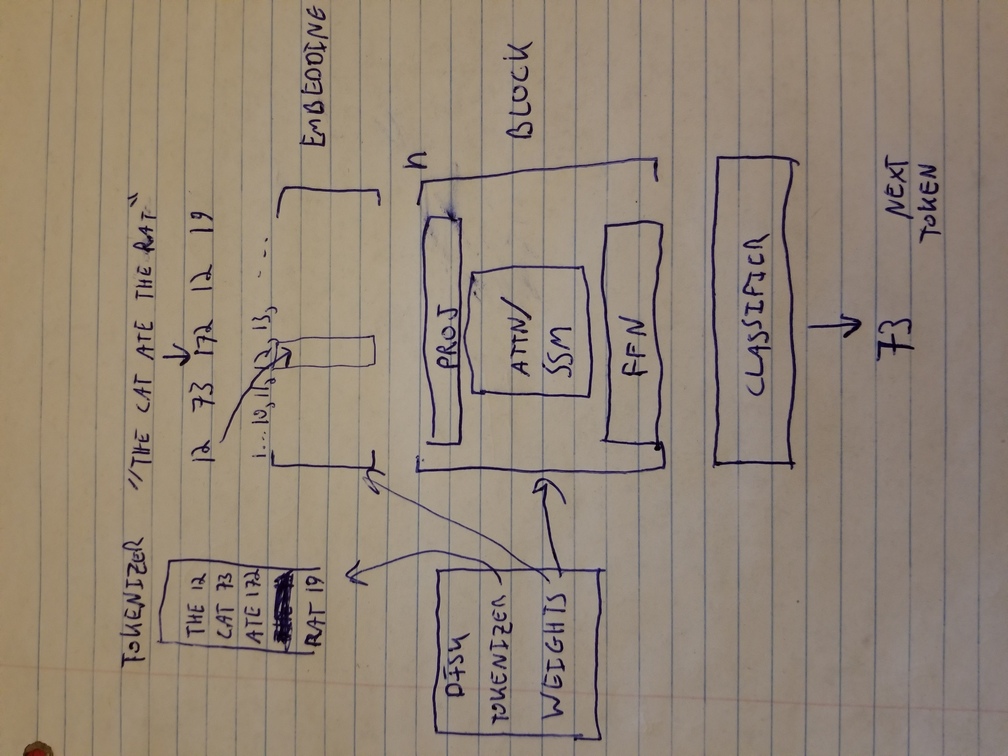 TOKENIZER
"THE CAT ATE THE RAT"
THE 12
CAT 73
ATE 172
RAT 19
12 73 172 12 19
1... 10, 11, 12, 13, ....
EMBEDDING
DISK
TOKENIZER
WEIGHTS
n
PROJ
ATTN/
SSM
FFN
BLOCK
CLASSIFIER
73
NEXT
TOKEN